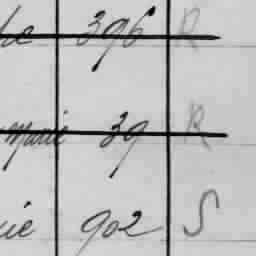 he 396 R
Marie 39 R
ie 902 S